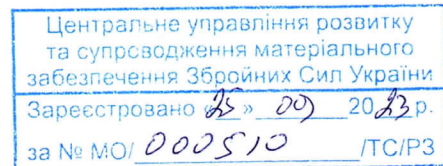 Центральне управління розвитку
та супроводження матеріального
забезпечення Збройних Сил України
Зареєстровано «25» 09 2023 р.
за № МО/ 000510 /ТС/РЗ